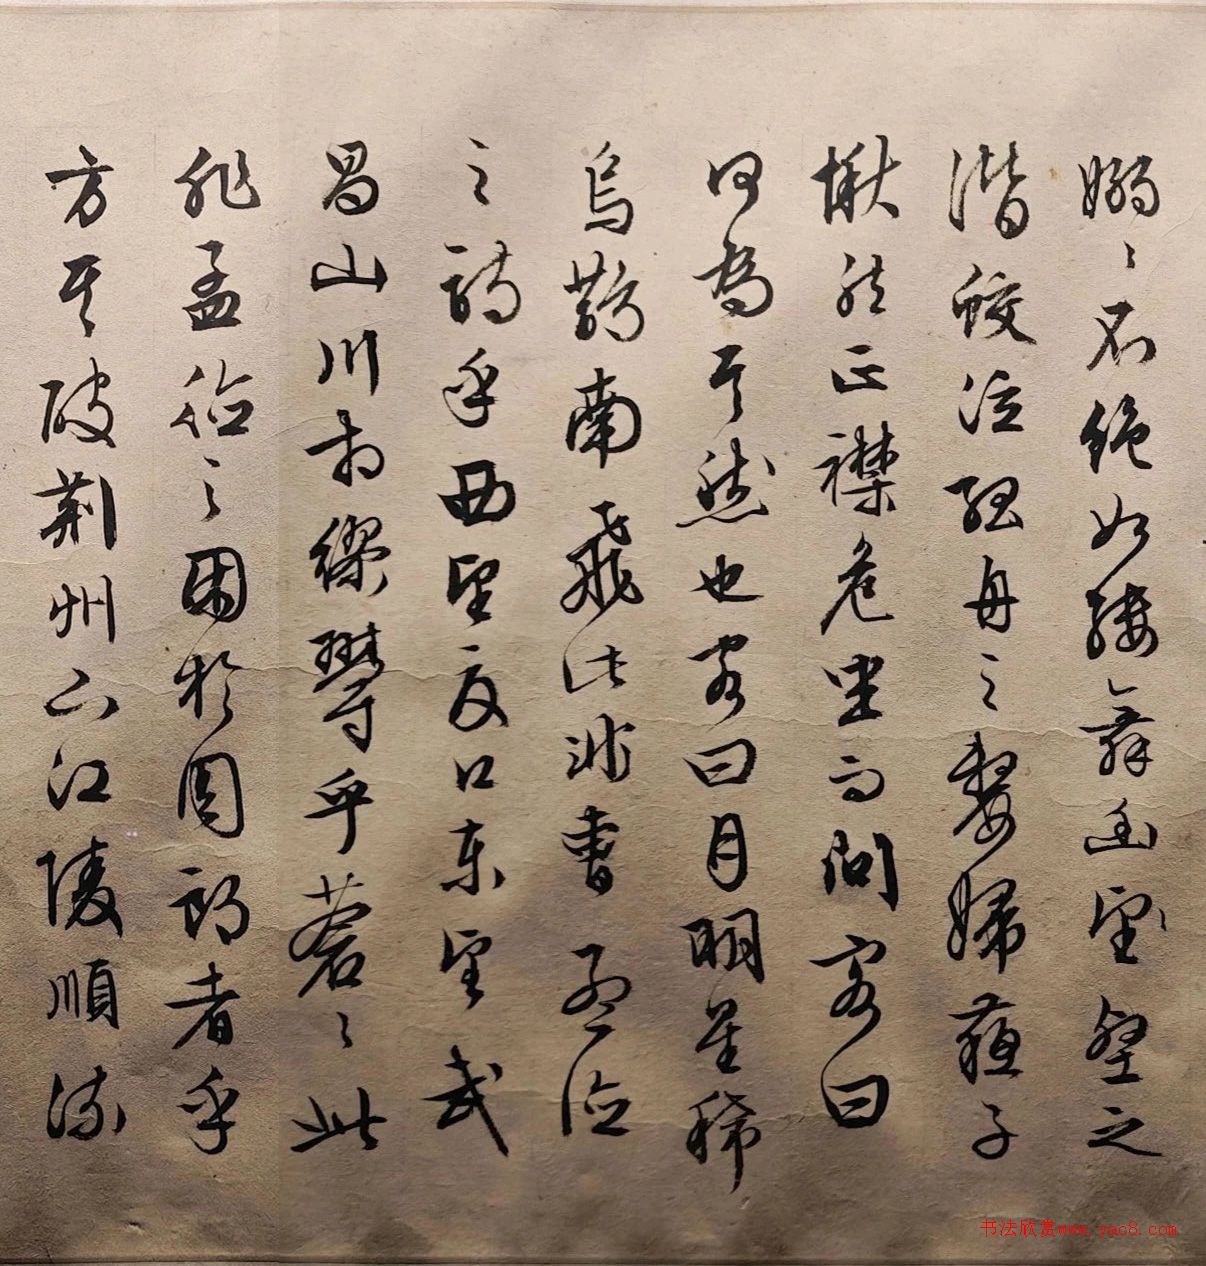 嫋〻不絕如縷舞幽壑之
潛蛟泣孤舟之嫠婦蘇子
愀然正襟危坐而問客曰
何為其然也客曰月明星稀
烏鵲南飛此非曹孟德
之詩乎西望夏口東望武
昌山川相繆鬱乎蒼〻此
非孟德之困於周郎者乎
方其破荊州下江陵順流
书法欣赏www.yac8.com